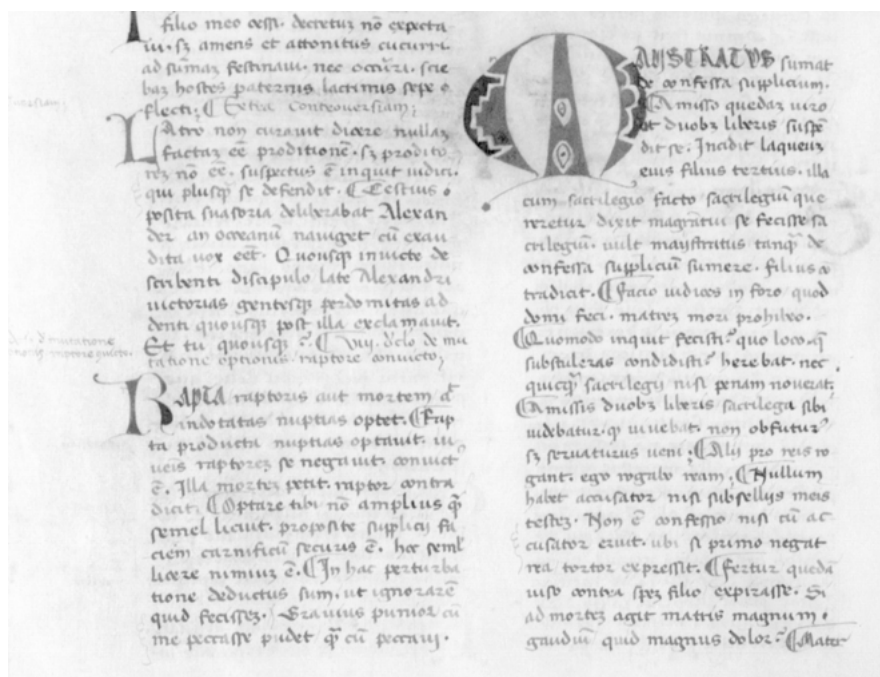 filio meo cessi. decretuz nõ expecta
ui. sz amens et attonitus cucurri.
ad sũmaz festinaui. nec occuri. scie
baz hostes paternis lacrimis sepe
flecti; ¶ Extra controuersiam;
Latro non curauit dicere nullaz
factaz eẽ proditionẽ. sz prodito
rez nõ eẽ. suspectus ẽ inquit iudici.
qui plusq̃ se defendit. ¶ Cestius
posita suasoria deliberabat Alexan
der an oceanũ nauiget cũ exau
dita uox eẽt. Quousqꝫ inuicte de
scribenti discipulo late Alexandri
uictorias gentesqꝫ perdomitas ad
denti quousqꝫ post illa exclamauit.
Et tu quousqꝫ? ¶ d'clo de mu
tatione optionis raptore conuicto;
RAPTA raptoris aut mortem
indotatas nuptias optet. ¶ Rap
ta producta nuptias optauit. iu
ueis raptorez se negauit. conuict'
ẽ. Illa mortez petit. raptor contra
dicit. ¶ Optare tibi nõ amplius q̃
semel licuit. proposite supplicii fa
ciem carnificũ securis ẽ. hoc seml'
licere nimiuz ẽ. ¶ In hac perturba
tione deductus sum. ut ignorarẽ
quid fecissez. Grauius punior cũ
me peccasse pudet q̃ cũ peccaui.
MAGISTRATVS sumat
de confessa supplicium.
¶ Amisso quedaz uiro
et duobꝫ liberis suspẽ
dit se. Incidit laqueuz
eius filius tertius. illa
cum sacrilegio facto sacrilegiũ que
reretur dixit magrãtui se fecisse sa
crilegiũ. uult magistratus tanq̃ de
confessa suppliciũ sumere. filius
tradicit. ¶ Facio iudices in foro quod
domi feci. matrez mori prohibeo.
¶ Quomodo inquit fecisti? quo loco. q̃
substuleras condidisti? herebat. nec
quicq̃ sacrilegii nisi penam nouerat.
¶ Amissis duobꝫ liberis sacrilega sibi
uidebatur. qꝫ uiuebat. non obfutur'
sz seruaturus ueni; ¶ Alii pro reis ro
gant. ego rogabo ream; ¶ Nullum
habet accusator nisi subselliis meis
testez. Non ẽ confessio nisi cũ ac
cusator eruit. ubi si primo negat
rea tortor expressit. ¶ Fertur quedã
uiso contra spez filio expirasse. Si
ad mortez agit matris magnum
gaudiũ quid magnus dolor? ¶ Mater